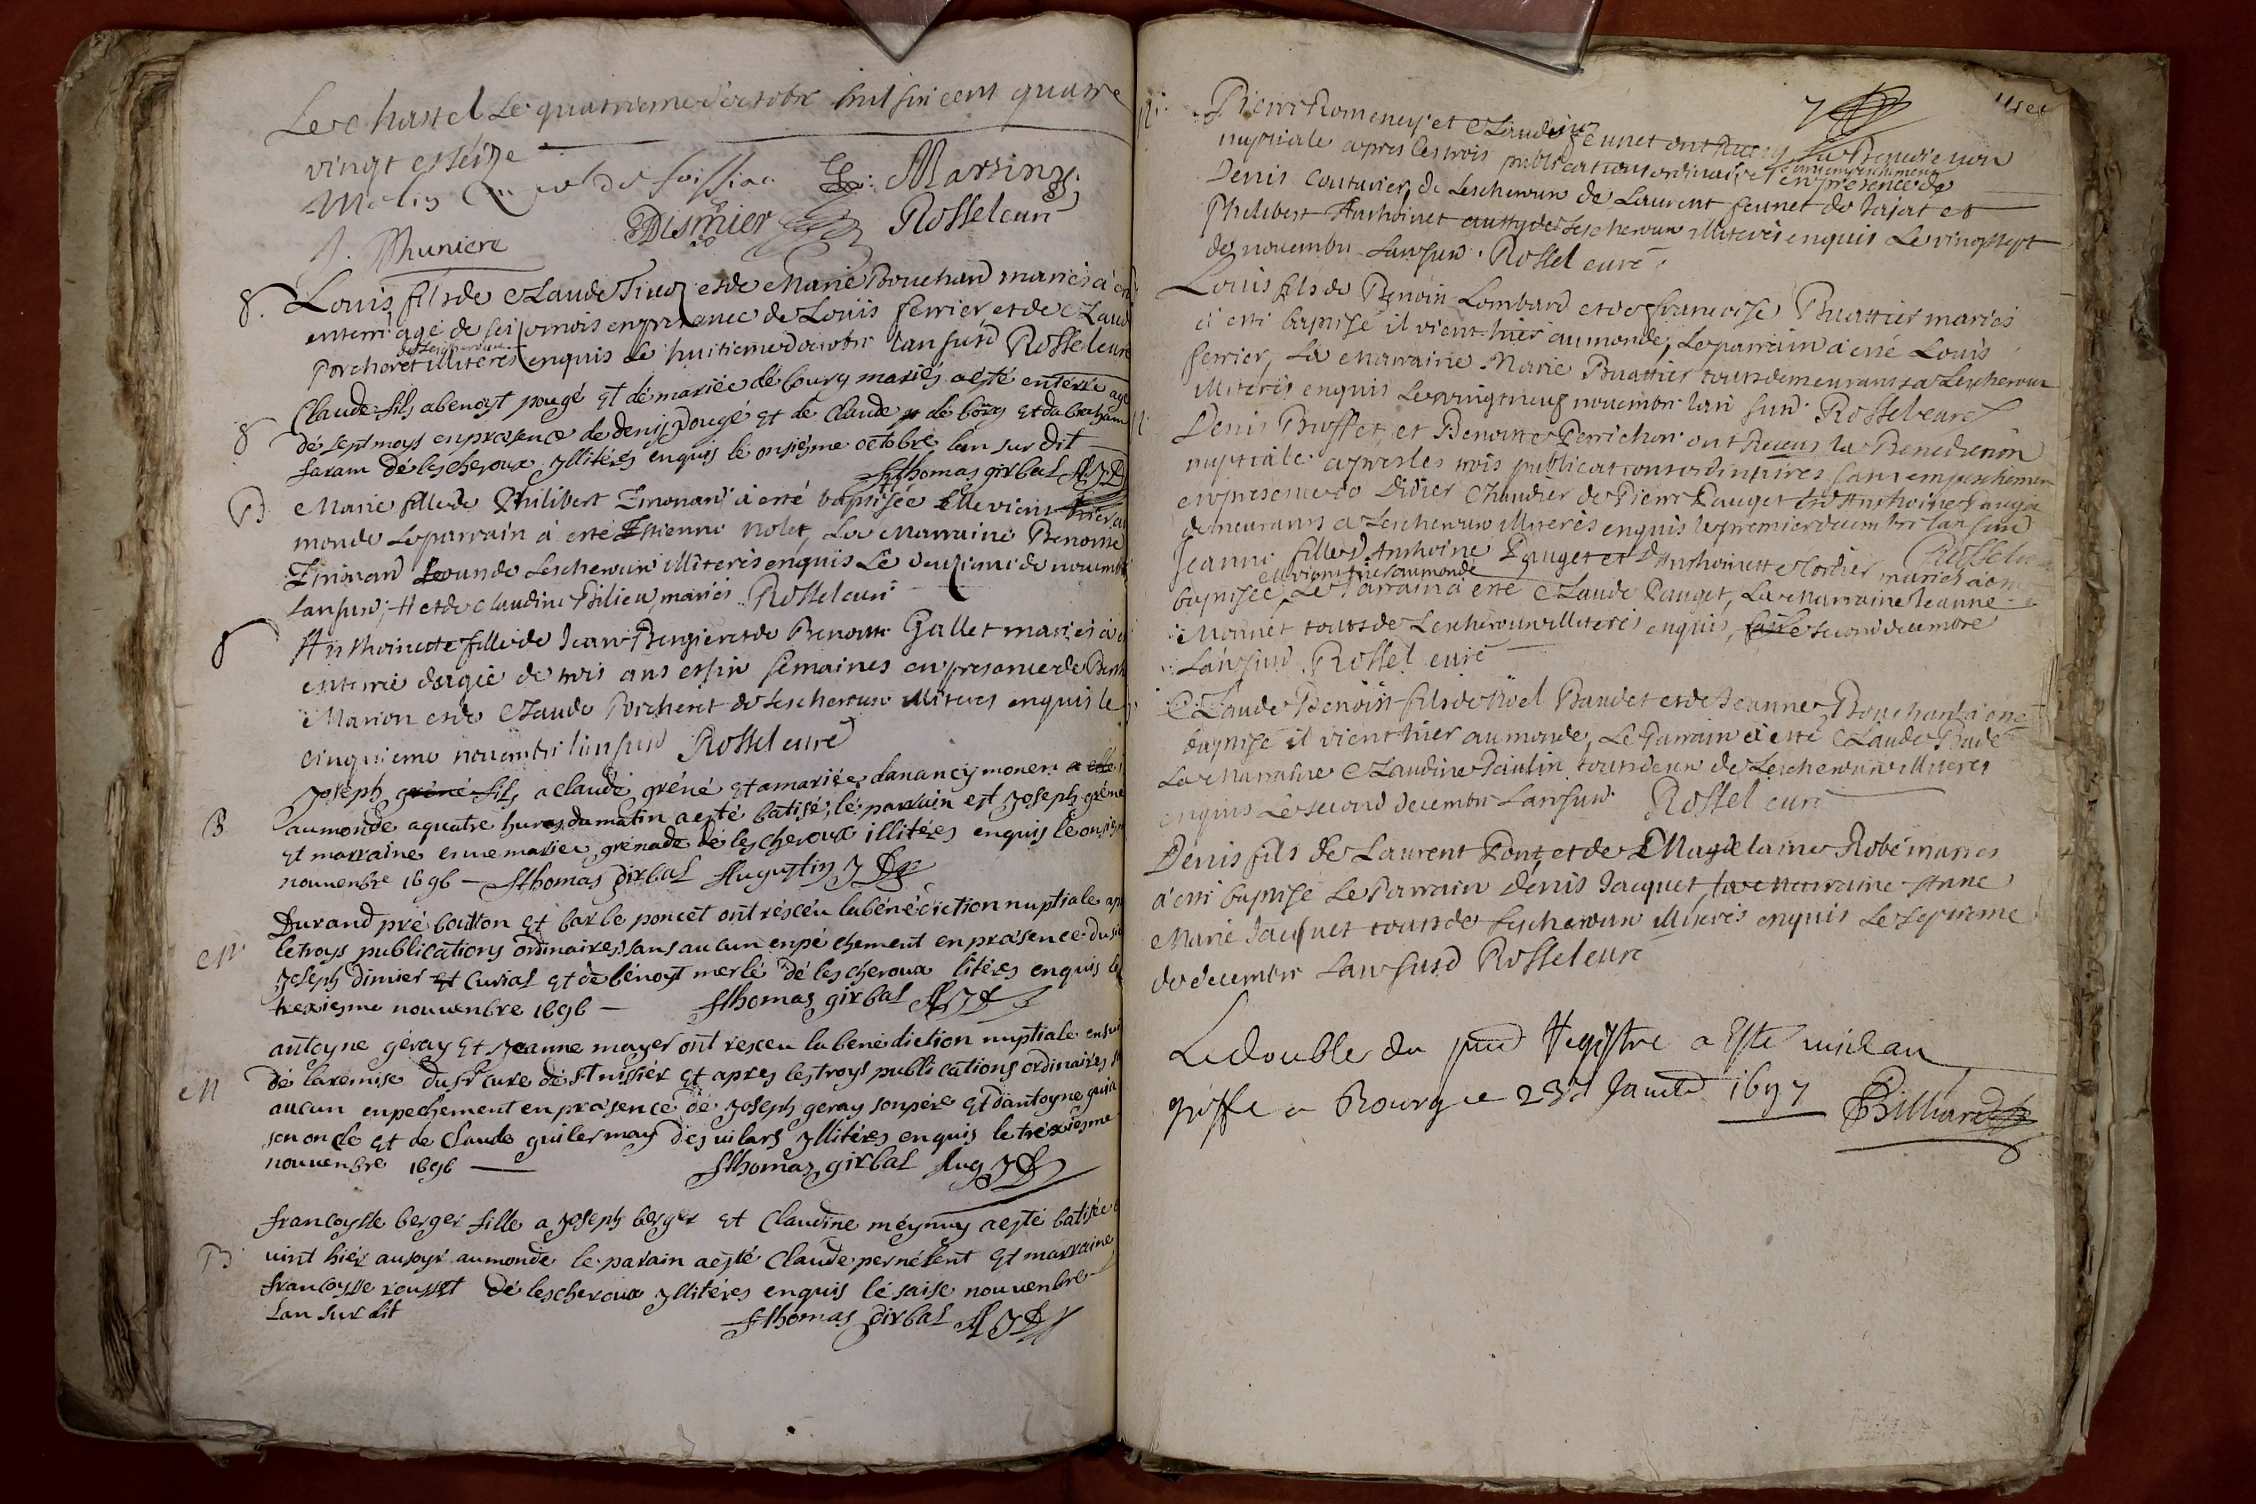 Lechastel Le quatriemed'octobr mil six cent quatre
vingt et seize
Marsin
Dismier Rosselcuré
J. Thuniere
8. Louis fils de Claude et de Marie Bouchard mariés à
enterré agé de six mois en presance de Loüis ferrier et de Claud
de Lescheroux
Porcheret illiterés enquis le huitieme d'octobr lan susd Rosselcuré
Claude fils abenoyt pougé Et dé mariée dé bourg mariés aesté enterré agé
8 dé sept moys enprasence de denis pougé Et de Claude de bourg Et dabraham
faram dé lescheroux yllitérés enquis le onsiéme octobre lan sur dit
fthomas girbal AJD
Marie fille de Philibert Emonard à esté baptisée Elle vient hier au
monde Leparrain à esté Estienne nolet, La Marraine Benoitte
Emonard de Lescheroux illiterés enquis Le deuxieme de novembr
lan susd, # et de Claudine Bilieu mariés Rosselcuré
8 Anthoinette fille de Jean Bergier et de Benoitte Gallet mariés à
enterrée dagée de trois ans et six semaines en presance de
Marion et de Claude Porcheret de Lescheroux illiterés enquis le
cinquieme novembr lan susd Rossel curé
Joseph fils a claude gréné Et amariée danancy monen
B aumonde aquatre hures du matin aesté batisé, lé parrain est Joseph gréné
Et marraine marie grénade dé lescheroux illitérés enquis lé onsiesme
nouvenbre 1696 — fthomas girbal Augustin J D
Durand pré boutton Et barbe poncét ont résceu labénédiction nuptiale
M letroys publications ordinaires sans aucun enpéchement enprasence du
Joseph dimier Et Curial Et dé bénoyt merlé dé lescheroux litérés enquis le
trexiesme nouvenbre 1696 — fthomas girbal AJD
antoyne géray Et Jeanne moyer ont resceu labénédiction nuptiale
M dé laremise dusr cure dé st nisier Et apres lestroys publications ordinaires
aucun enpechement enprasence dé Joseph geray sonpére Et dantoyne
son oncle Et de Claude guilermay des vilars yllitérés enquis le trexiesme
nouvenbre 1696 — fthomas girbal Aug J D
francoysse berger fille a Joseph berger Et Claudine aesté batisée
B vint hiér ausoyr aumonde le parain aesté Claude pernélent Et marraine
francoysse rousset dé lescheroux yllitérés enquis lé saise nouvenbre
Lan sur dit fthomas girbal AJD
7
Pierre Romeney et Claudine Jeunet ont Receu La Benediction
nuptiale apres les trois publications ordinaires en presence de
Denis couturier, de Lescheroux de Laurent Jeunet de Jajat et
Philibert Anthoinet de Lescheroux illiterés enquis Le vingtsept
de novembr Lansusd. Rossel curé
Louis fils de Benoin Lombard et de francoise Buattier mariés
à esté baptisé il vient hier au monde, Le parrain à esté Louis
ferrier, La Marraine Marie Buattier tous demeurans a Lescheroux
illiterés enquis Le vingtneuf novembr lan susd Rosselcuré
Denis Buffet et Benoitte Perrichon ont Receus la Benediction
nuptiale apres les trois publications ordinaires sans empeschement
en presence de Didier Chaudier de Pierre Pauget
demeurans a Lescheroux illiterés enquis le premier decembr lan susd
Rosselcuré
Jeanne fille d'Anthoine Pauget et d'Anthoinette Cordier mariés à esté
elle vient hier au monde
baptisée, Le Parrain à esté Claude Pauget, La Marraine Jeanne
Monnet tous de Lescheroux illiterés enquis, le second decembre
Lansusd Rossel curé
Claude Benoist fils de Noël Baudet et de Jeanne Bouchard à esté
baptisé il vient hier au monde, Le Parrain à esté Claude Baudet
La Marraine Claudine Paulin tous deux de Lescheroux illiterés
enquis Le second decembr Lansusd Rossel curé
Denis fils de Laurent Pont et de Magdelaine Robé mariés
à esté baptisé Le Parrain Denis Jacquet, La Marraine Anne
Marie Jacquet tous de Lescheroux illiterés enquis Le septieme
de decembr Lansusd Rosselcuré
Le double du pnt Registre a Esté mis au
greffe a Bourg ce 23e Janvier 1697 Billiard